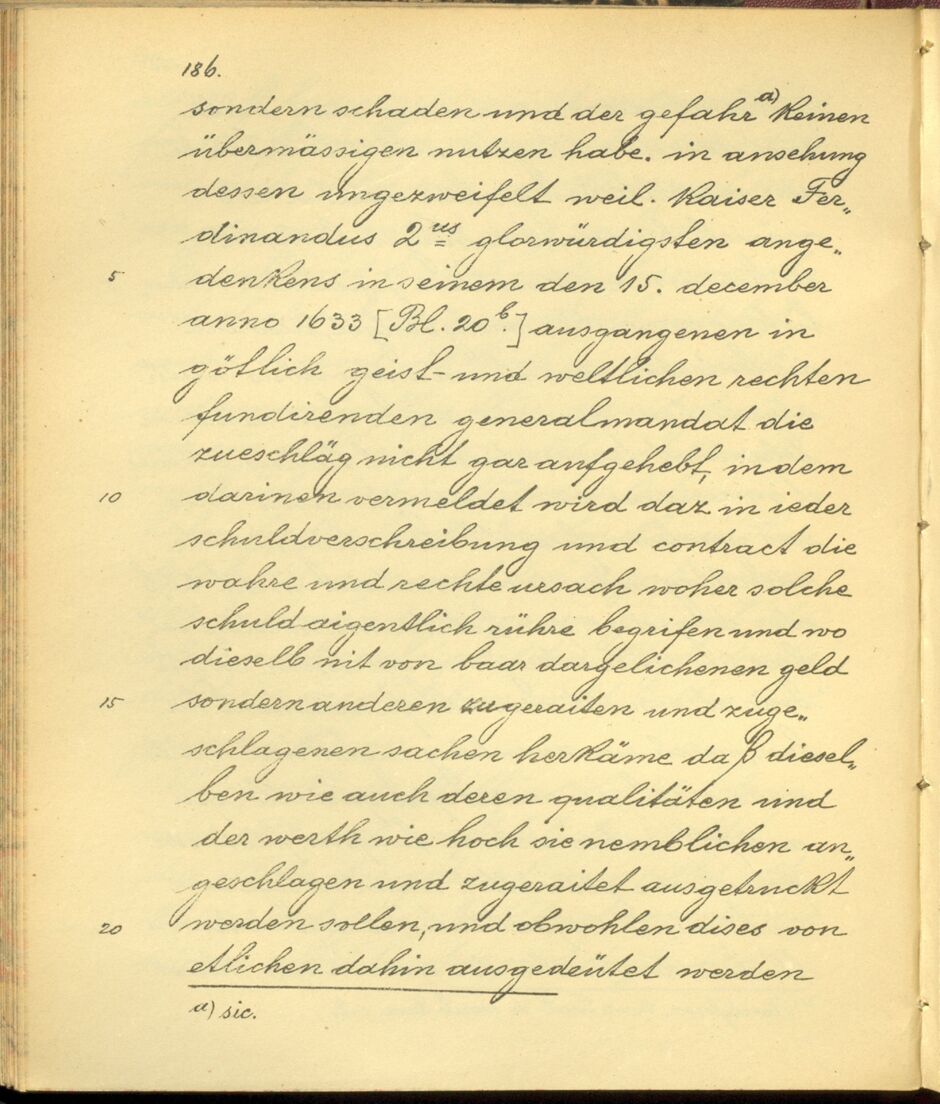 186.
sondern schaden und der gefahr a) keinen
übermässigen nutzen habe. in ansehung
dessen ungezweifelt weil. kaiser Fer„
dinandus 2us glorwürdigsten ange„
5 denkens in seinem den 15. december
anno 1633 [Bl. 20b.] ausgangenen in
götlich geist- und weltlichen rechten
fundirenden generalmandat die
zueschläg nicht gar aufgehebt, in dem
10 darinen vermeldet wird daz in ieder
schuldverschreibung und contract die
wahre und rechte ursach woher solche
schuld aigentlich rühre begrifen und wo
dieselb nit von baar dargelichenen geld
15 sondern anderen zugeraiten und zuge„
schlagenen sachen herkäme daß diesel„
ben wie auch deren qualitäten und
der werth wie hoch sie nemblichen an„
geschlagen und zugeraitet ausgetruckt
20 werden sollen, und obwohlen dises von
etlichen dahin ausgedeütet werden
a) sic.